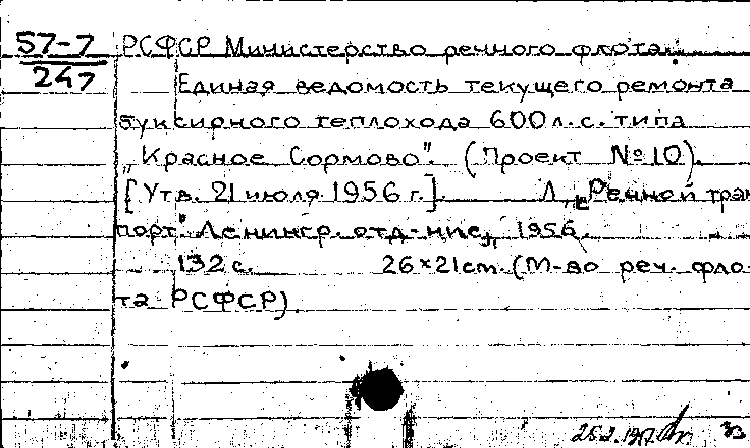 57-7
247
РСФСР Министерство речного флота.
Единая ведомость текущего ремонта
буксирного теплохода 600 л.с. типа
„Красное Сормово". (Проект №10).
[Утв. 21 июля 1956 г.]. Л., „Речной тран
порт". Ленингр. отд-ние, 1956.
132 с. 26×21 cm. (М-во реч. фло-
та РСФСР).